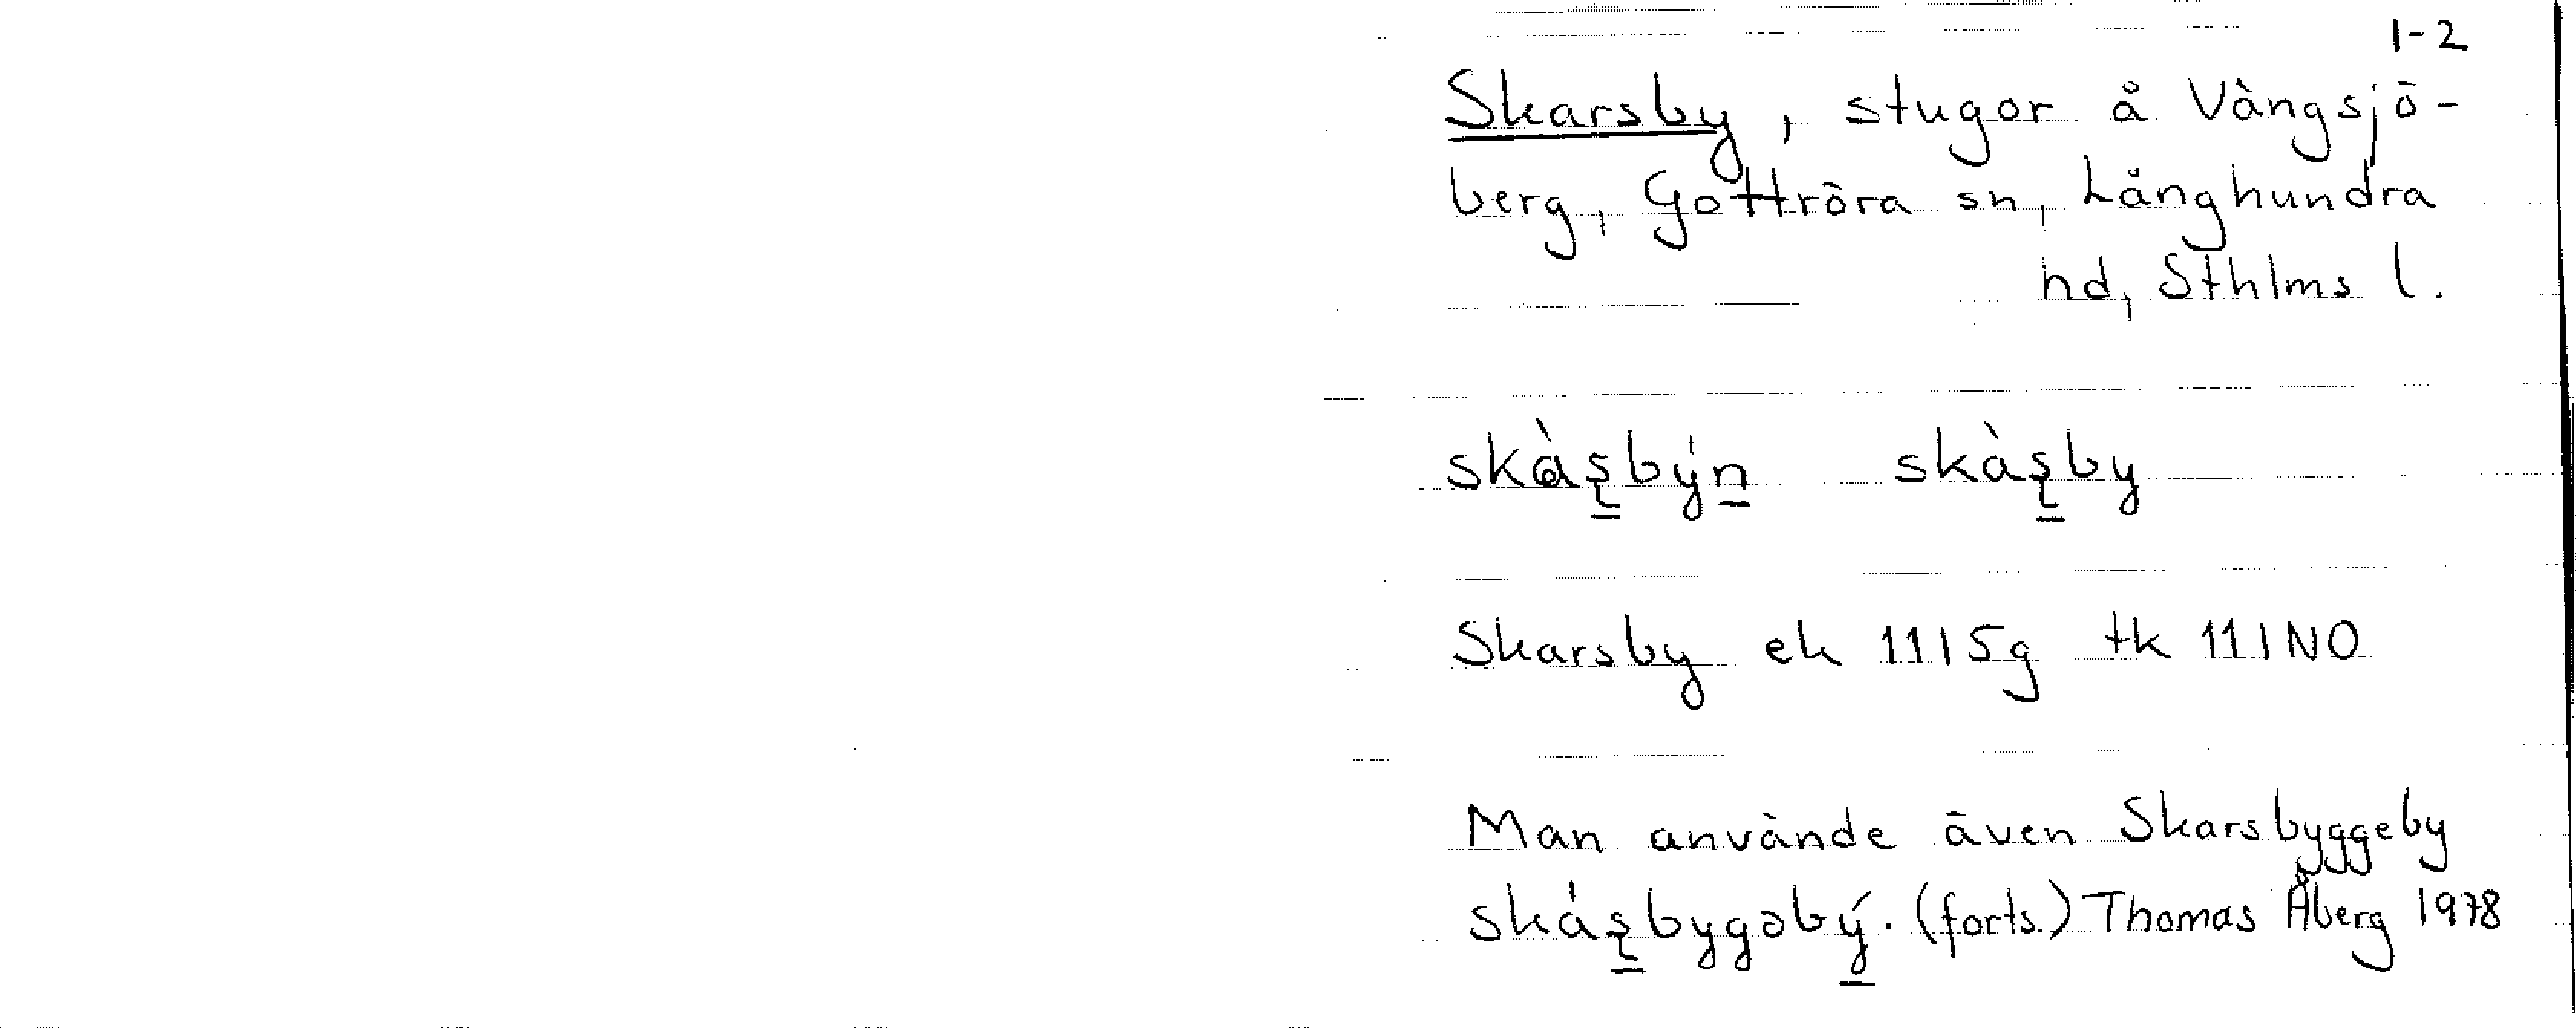 1-2
Skarsby, stugor å Vängsjö-
berg, Gottröra sn, Långhundra
hd, Sthlms l.
skàʂbýn skàʂby
Skarsby ek 11I5g tk 111NO
Man användе även Skarsbyggeby
skáʂbygəbý. (forts.) Thomas Åberg 1978